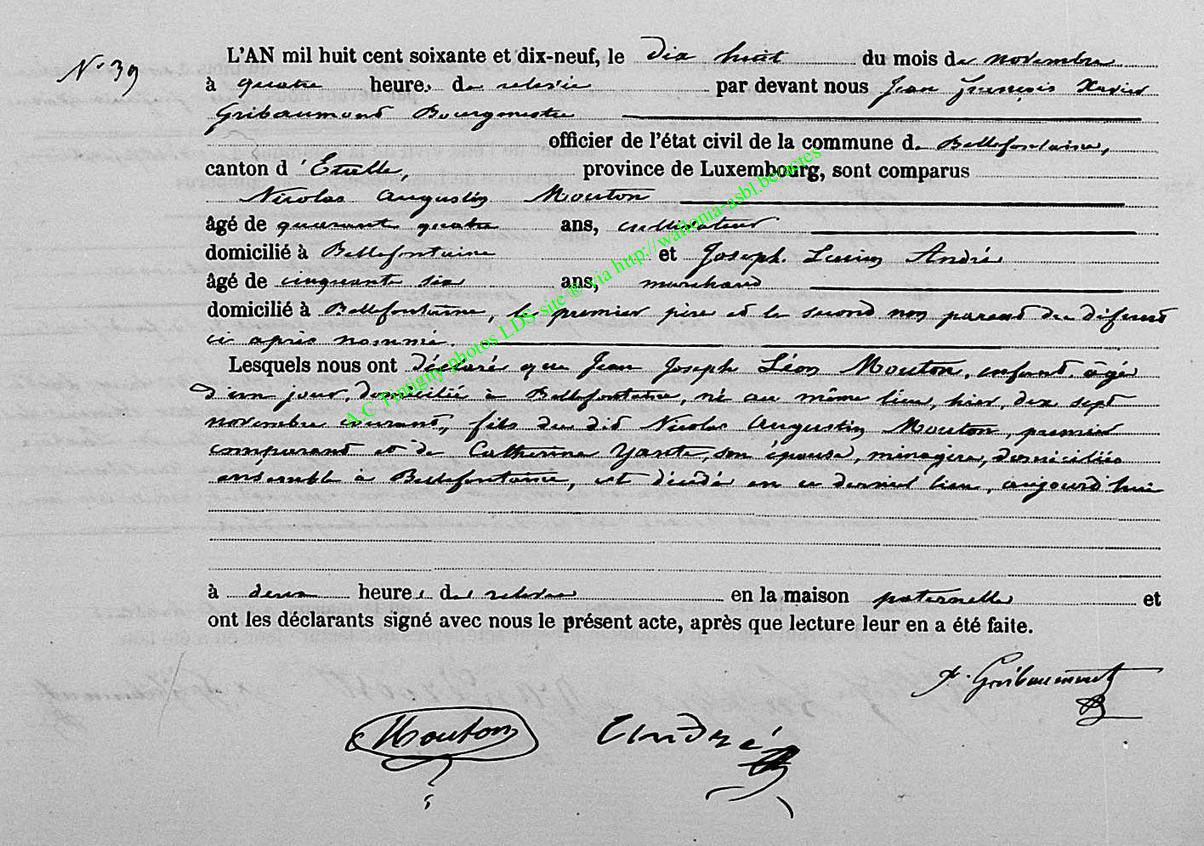 N° 39
L'AN mil huit cent soixante et dix-neuf, le dix huit du mois de novembre
à quatre heures de relevée par devant nous Jean François Xavier
Gribaumont Bourgmestre
officier de l'état civil de la commune de Bellefontaine,
canton d'Etalle, province de Luxembourg, sont comparus
Nicolas Augustin Mouton
âgé de quarante quatre ans, cultivateur
domicilié à Bellefontaine et Joseph Lucien André
âgé de cinquante six ans, marchand
domicilié à Bellefontaine, le premier père et le second non parent du défunt
ci après nommé.
Lesquels nous ont déclaré que Jean Joseph Léon Mouton, enfant âgé
d'un jour, domicilié à Bellefontaine, né au même lieu, hier, dix sept
novembre courant, fils du dit Nicolas Augustin Mouton, premier
comparant et de Catherine Yante, son épouse, ménagère, domiciliés
ensemble à Bellefontaine, est décédé en ce dernier lieu, aujourd'hui
à deux heures de relevée en la maison paternelle et
ont les déclarants signé avec nous le présent acte, après que lecture leur en a été faite.
Gribaumont
Mouton André
A.C Tintigny photos LDS site ® via http://wallonia-asbl.be/actes